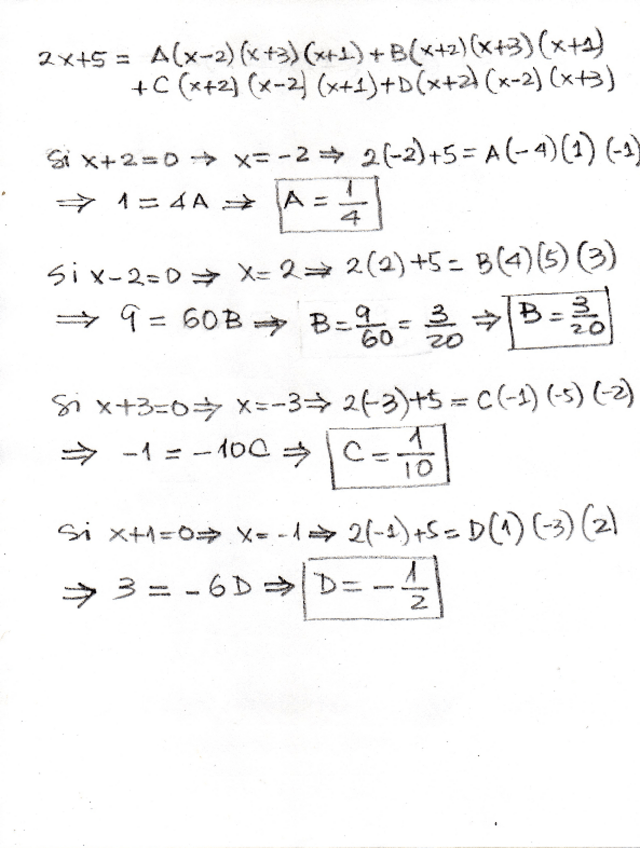 2x+5 = A(x-2)(x+3)(x+1)+B(x+2)(x+3)(x+1)
+C(x+2)(x-2)(x+1)+D(x+2)(x-2)(x+3)
Si x+2=0 → x=-2 ⇒ 2(-2)+5=A(-4)(1)(-1)
⇒ 1=4A ⇒ A=1/4
Si x-2=0 ⇒ x=2 ⇒ 2(2)+5=B(4)(5)(3)
⇒ 9=60B ⇒ B=9/60=3/20 ⇒ B=3/20
Si x+3=0 ⇒ x=-3 ⇒ 2(-3)+5=C(-1)(-5)(-2)
⇒ -1=-10C ⇒ C=1/10
Si x+1=0 ⇒ x=-1 ⇒ 2(-1)+5=D(1)(-3)(2)
⇒ 3=-6D ⇒ D=-1/2